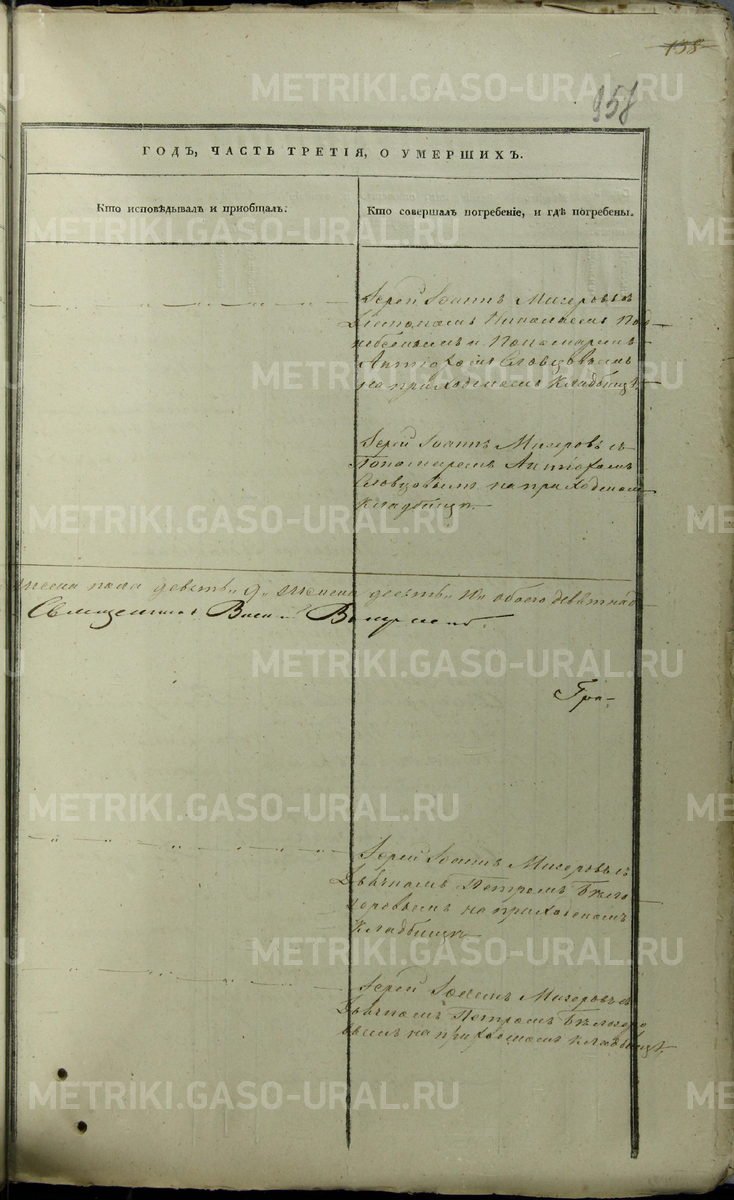 158
958
ГОДЪ, ЧАСТЬ ТРЕТІЯ, О УМЕРШИХЪ.
Кто исповѣдывалъ и пріобщалъ.
Кто совершалъ погребеніе, и гдѣ погребены.
Іерей Іоаннъ Мигеровъ съ
Діакономъ Николаемъ
и Пономаремъ
Антіохомъ Словцовымъ
на приходскомъ кладбищѣ
Іерей Іоаннъ Мигеровъ съ
Пономаремъ Антіохомъ
Словцовымъ на приходскомъ
кладбищѣ.
пола девять 9, женска десять 10 обоего девятнад
Священникъ
Гра-
Іерей Іоаннъ Мигеровъ съ
Дьячкомъ Петромъ Бѣлого
ровымъ на приходскомъ
кладбищѣ
Іерей Іоаннъ Мигеровъ съ
Дьячкомъ Петромъ Бѣлогоро
вымъ на приходскомъ кладбищѣ.
METRIKI.GASO-URAL.RU